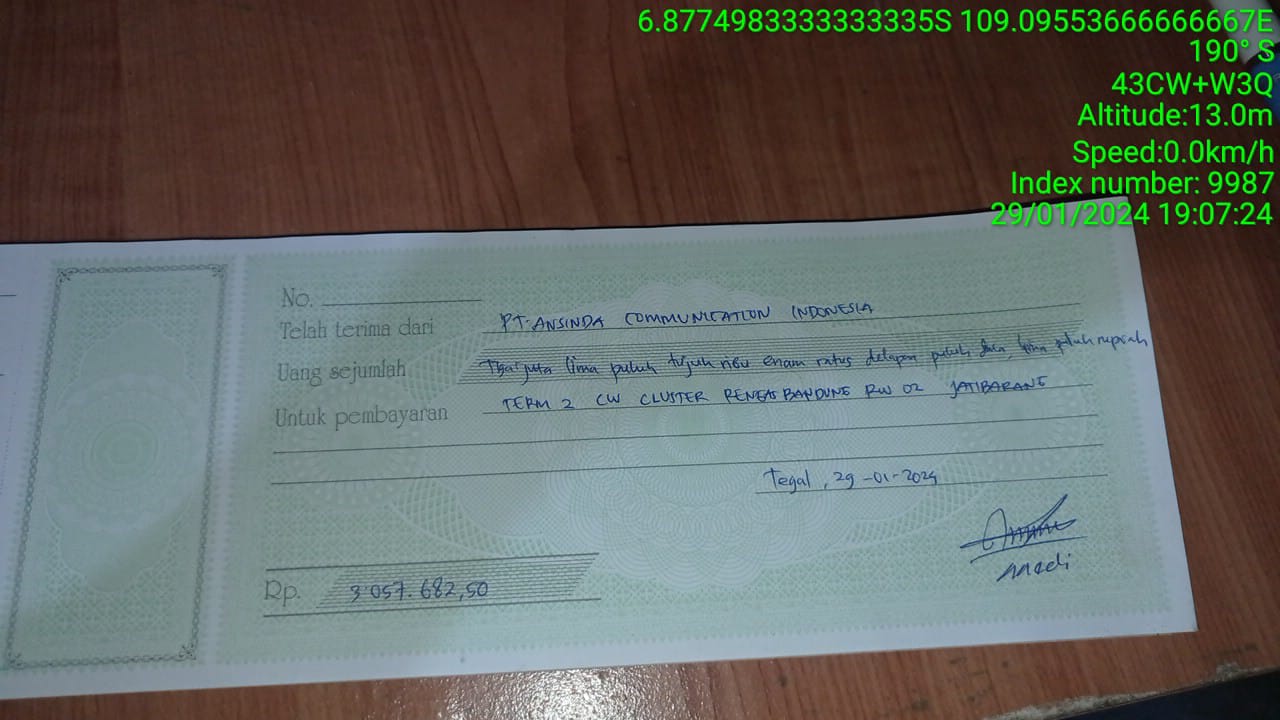 6.8774983333333335S 109.09553666666667E
190° S
43CW+W3Q
Altitude:13.0m
Speed:0.0km/h
Index number: 9987
29/01/2024 19:07:24
No.
Telah terima dari PT. ANSINDA COMMUNICATION INDONESIA
Uang sejumlah Tiga juta lima puluh tujuh ribu enam ratus delapan puluh dua, lima puluh rupiah
Untuk pembayaran TERM 2 CW CLUSTER RENGASBANDUNG RW 02 JATIBARANG
Tegal, 29-01-2024
Rp. 3.057.682,50